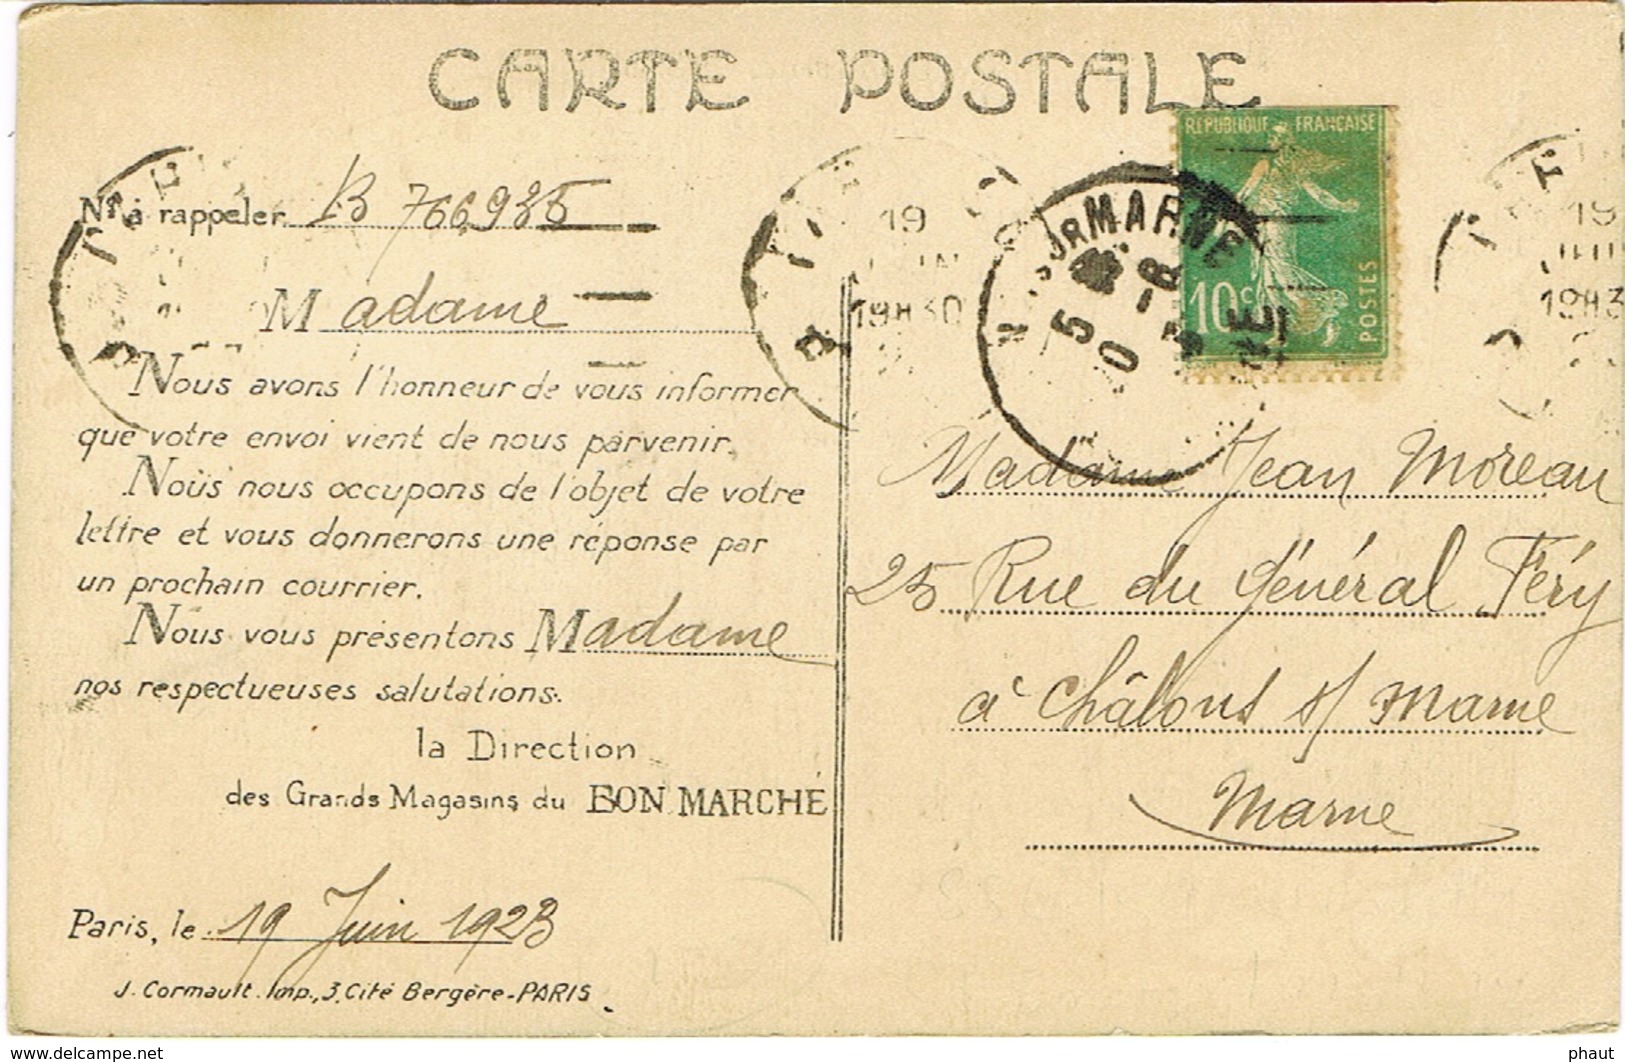 CARTE POSTALE
REPUBLIQUE FRANÇAISE
10c
POSTES
MARNE
19
19H30
19
N° à rappeler B 766986
Madame
Nous avons l'honneur de vous informer
que votre envoi vient de nous parvenir.
Nous nous occupons de l'objet de votre
lettre et vous donnerons une réponse par
un prochain courrier.
Nous vous présentons Madame
nos respectueuses salutations.
la Direction
des Grands Magasins du BON MARCHÉ
Paris, le 19 Juin 1923
J. Cormault. Imp., 3, Cité Bergère-PARIS
Madame Jean Moreau
25 Rue du Général Féry
à Châlons s/ Marne
Marne
www.delcampe.net
phaut